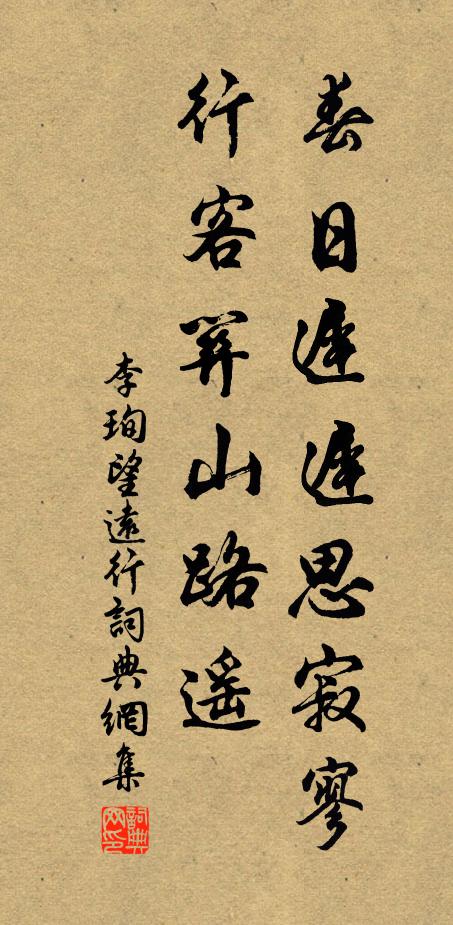 春日遲遲思寂寥
行客關山路遙
李珣望遠行詞典網集
詞典
网印